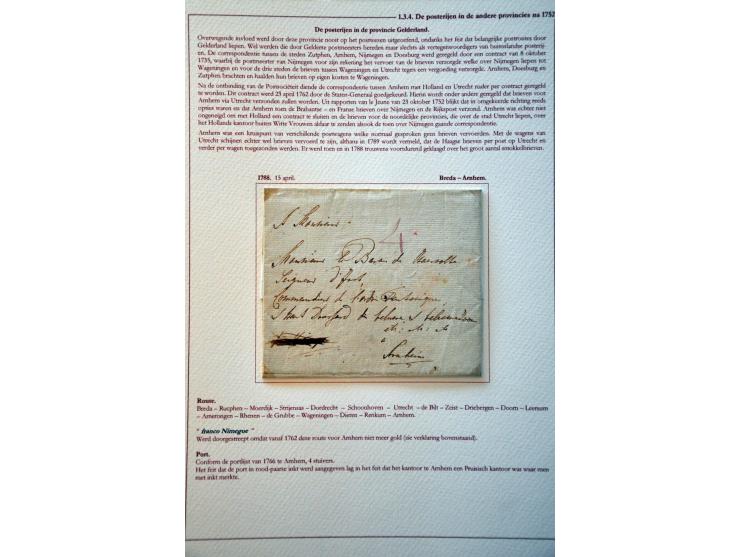 1.3.4. De posterijen in de andere provincies na 1752
De posterijen in de provincie Gelderland.
Overwegende invloed werd door deze provincie nooit op het postwezen uitgeoefend, ondanks het feit dat belangrijke postroutes door
Gelderland liepen. Wel werden die door Gelderse postmeesters bereden maar slechts als vertegenwoordigers van buitenlandse posterij-
en. De correspondentie tussen de steden Zutphen, Arnhem, Nijmegen en Doesburg werd geregeld door een contract van 8 oktober
1735, waarbij de postmeester van Nijmegen voor zijn rekening het vervoer van de brieven verzorgde welke over Nijmegen liepen tot
Wageningen en voor de drie steden de brieven tussen Wageningen en Utrecht tegen een vergoeding verzorgde. Arnhem, Doesburg en
Zutphen brachten en haalden hun brieven op eigen kosten te Wageningen.
Na de ontbinding van de Postsociëteit diende de correspondentie tussen Arnhem met Holland en Utrecht nader per contract geregeld
te worden. Dit contract werd 23 april 1762 door de Staten-Generaal goedgekeurd. Hierin wordt onder andere geregeld dat brieven voor
Arnhem via Utrecht verzonden zullen worden. Uit rapporten van le Jeune van 23 oktober 1752 blijkt dat in omgekeerde richting reeds
opties waren en dat Arnhem toen de Brabantse – en Franse brieven over Nijmegen en de Rijkspost verzond. Arnhem was echter niet
ongeneigd om met Holland een contract te sluiten en de brieven voor de noordelijke provincies, die over de stad Utrecht liepen, over
het Hollands kantoor buiten Witte Vrouwen aldaar te zenden alsook de toen over Nijmegen gaande correspondentie.
Arnhem was een kruispunt van verschillende postwagens welke normaal gesproken geen brieven vervoerden. Met de wagens van
Utrecht schijnen echter wel brieven vervoerd te zijn, althans in 1789 wordt vermeld, dat de Haagse brieven per post op Utrecht en
verder per wagen toegezonden werden. Er werd toen en in 1788 trouwens voortdurend geklaagd over het groot aantal smokkelbrieven.
1788. 15 april. Breda – Arnhem.
A Monsieur
4.
Monsieur Le Baron de
Seigneur d'
Commandeur de l'ordre Teutonique
à
Arnhem
Route.
Breda – Rucphen – Moerdijk – Strijensas – Dordrecht – Schoonhoven – Utrecht – de Bilt – Zeist – Driebergen – Doorn – Leersum
– Amerongen – Rhenen – de Grubbe – Wageningen – Dieren – Renkum – Arnhem.
" franco Nimegue "
Werd doorgestreept omdat vanaf 1762 deze route voor Arnhem niet meer gold (zie verklaring bovenstaand).
Port.
Conform de portlijst van 1766 te Arnhem, 4 stuivers.
Het feit dat de port in rood-paarse inkt werd aangegeven lag in het feit dat het kantoor te Arnhem een Pruisisch kantoor was waar men
met inkt merkte.